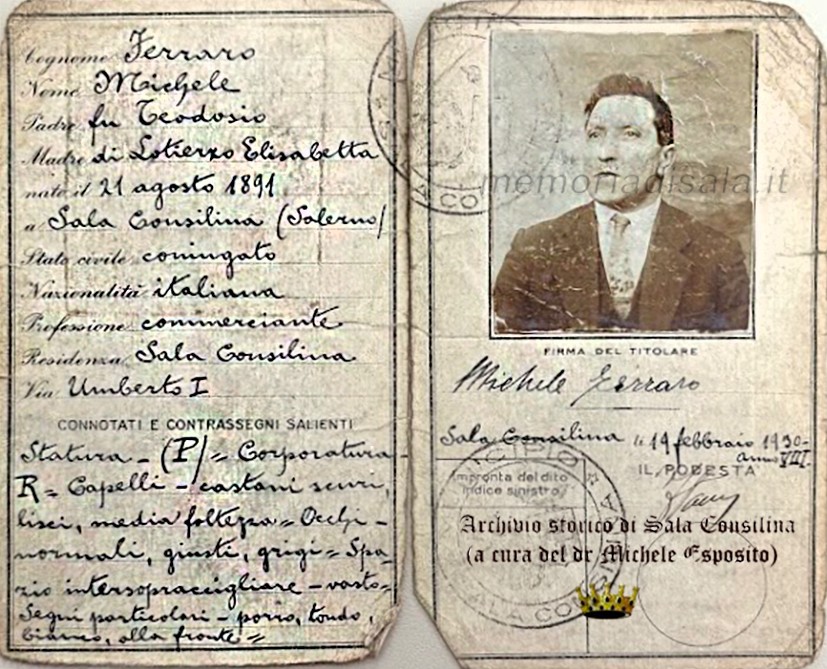 Cognome Ferraro
Nome Michele
Padre fu Teodosio
Madre di Lotierzo Elisabetta
nato il 21 agosto 1891
a Sala Consilina (Salerno)
Stato civile coniugato
Nazionalità italiana
Professione commerciante
Residenza Sala Consilina
Via Umberto I
CONNOTATI E CONTRASSEGNI SALIENTI
Statura - (P) = Corporatura -
R = Capelli - castani scuri,
lisci, media foltezza = Occhi -
normali, giusti, grigi = Spa-
zio intersopraccigliare - vasto =
Segni particolari - porro, tondo,
bianco, alla fronte =
memoriadisala.it
FIRMA DEL TITOLARE
Michele Ferraro
Sala Consilina li 19 febbraio 1930 -
anno VIII.
IL PODESTÀ
Impronta del dito
indice sinistro
Archivio storico di Sala Consilina
(a cura del dr Michele Esposito)